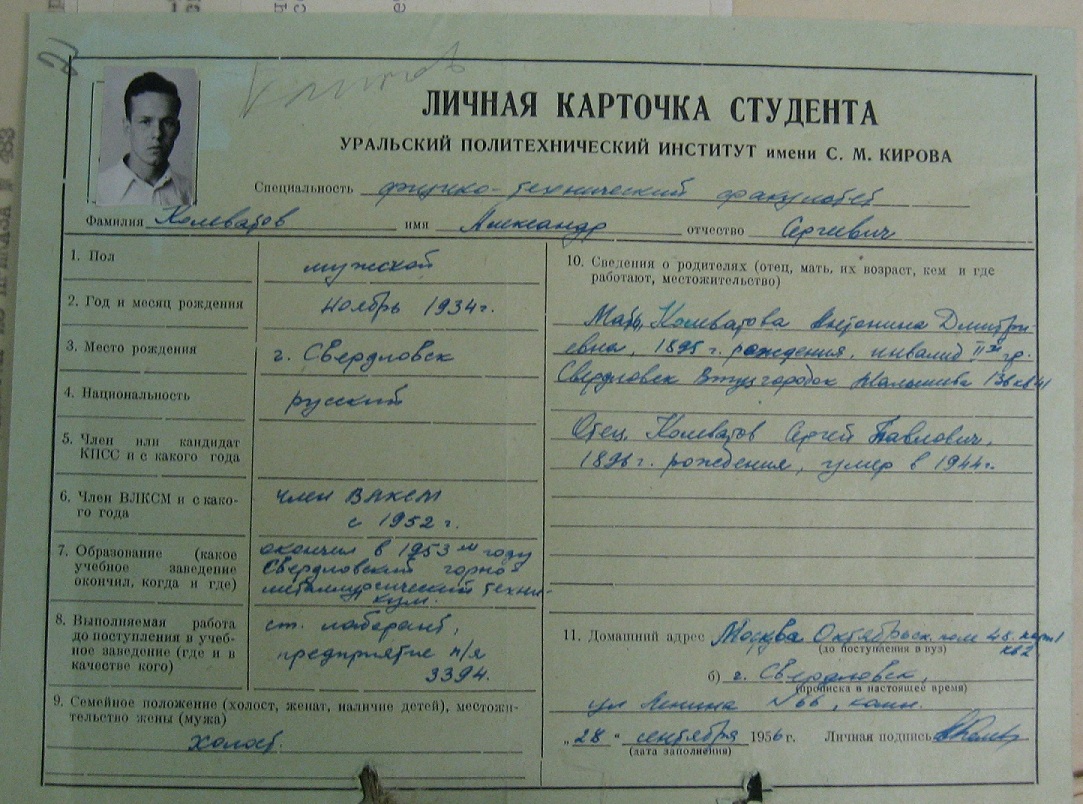 ЛИЧНАЯ КАРТОЧКА СТУДЕНТА
УРАЛЬСКИЙ ПОЛИТЕХНИЧЕСКИЙ ИНСТИТУТ имени С. М. КИРОВА
Специальность физико-технический факультет
Фамилия Колеватов имя Александр отчество Сергеевич
1. Пол мужской
2. Год и месяц рождения ноябрь 1934 г.
3. Место рождения г. Свердловск
4. Национальность русский
5. Член или кандидат
КПСС и с какого года
6. Член ВЛКСМ и с како-
го года
член ВЛКСМ
с 1952 г.
7. Образование (какое
учебное заведение
окончил, когда и где)
окончил в 1953 году
Свердловский горно-
металлургический техни-
кум.
8. Выполняемая работа
до поступления в учеб-
ное заведение (где и в
качестве кого)
ст. лаборант,
предприятие п/я
3394.
9. Семейное положение (холост, женат, наличие детей), местожи-
тельство жены (мужа)
холост.
10. Сведения о родителях (отец, мать, их возраст, кем и где
работают, местожительство)
Мать, Колеватова Антонина Дмитри-
евна, 1895 г. рождения, инвалид II гр.
Свердловск Втузгородок Малышева
Отец, Колеватов Сергей Павлович,
1896 г. рождения, умер в 1944 г.
11. Домашний адрес Москва Октябрьск. поле 45
кв 2
(до поступления в вуз)
б) г. Свердловск,
(прописка в настоящее время)
ул Ленина №66, комн.
„28“ сентября 1956 г. Личная подпись
(дата заполнения)